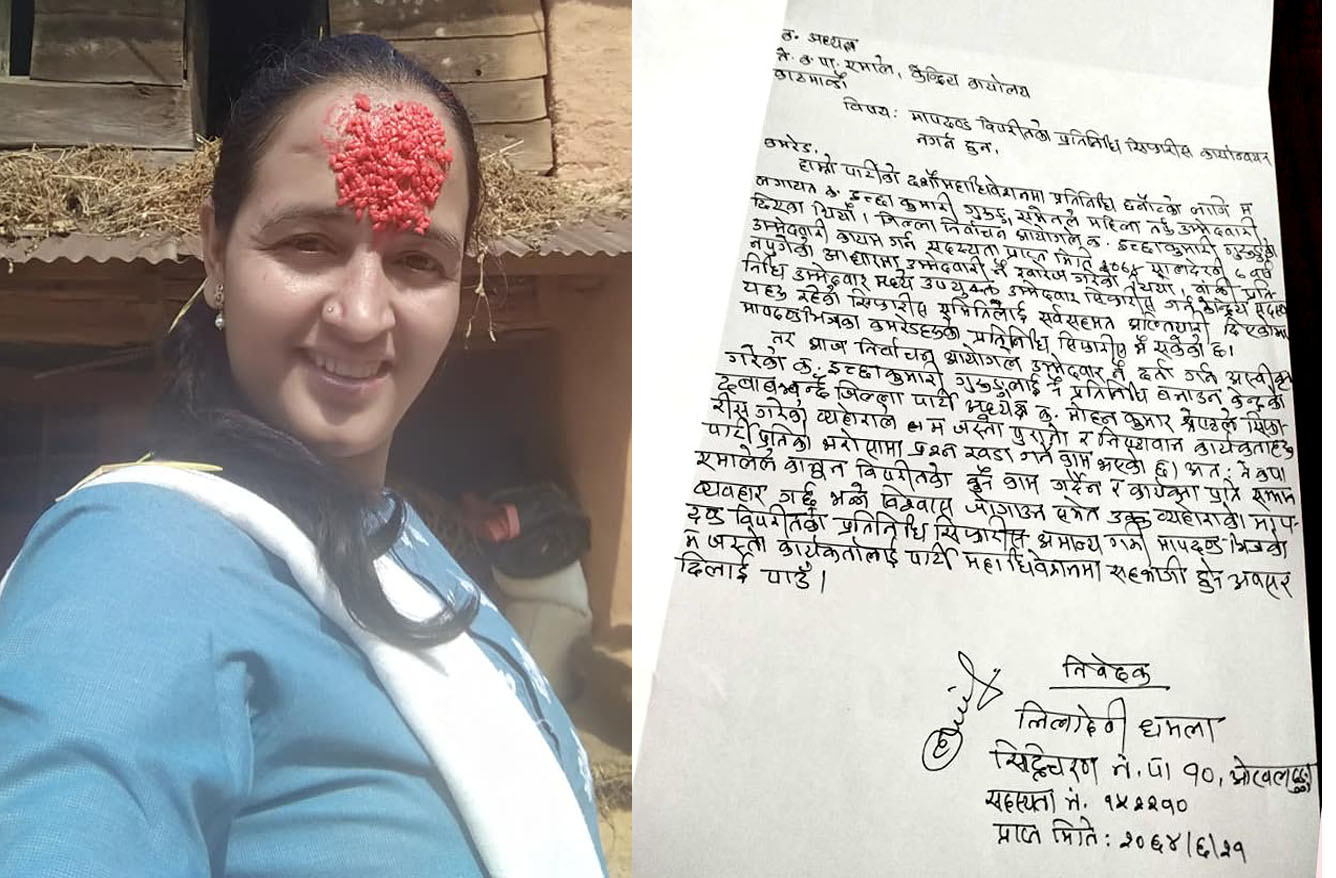 क. अध्यक्ष
ने. क. पा. एमाले, केन्द्रिय कार्यालय
काठमाण्डौं
विषय: मापदण्ड विपरीतको प्रतिनिधि सिफारीस कार्यान्वयन
नगर्न हुन,
कमरेड,
हाम्रो पार्टीको दशौं महाधिवेशनमा प्रतिनिधि छनौटको लागि म
लगायत क. इच्छा कुमारी गुरुङ, समेतले महिला तर्फ उम्मेदवारी
दिएका थियौं । जिल्ला निर्वाचन आयोगले क. इच्छाकुमारी
उम्मेदवारी कायम गर्न सदस्यता प्राप्त मिति सालदरणी ७ वर्ष
नपुगेको आधारमा उम्मेदवारी नै खारेज गरेको थियो, बाँकी प्रति-
निधि उम्मेदवार मध्ये उपयुक्त उम्मेदवार सिफारीस गर्न केन्द्रिय सदस्य
रहेको सिफारीस समितिलाई सर्वसहमत
मापदण्डभित्रका कमरेडहरूको प्रतिनिधि सिफारीस नै सकेको छ।
तर आज निर्वाचन आयोगले उम्मेदवार नै दर्ता गर्न अस्वीकृत
गरेको क. इच्छाकुमारी गुरुङलाई नै प्रतिनिधि बनाउन केन्द्रको
जिल्ला पार्टी अध्यक्ष क. मोहन कुमार श्रेष्ठले सिफा-
रीस गरेको व्यहोराले म जस्ता पुराना र निष्ठावान कार्यकर्ताहरू
पार्टी प्रतिको भरोसामा प्रश्न खडा गर्ने काम भएको छ। अत: नेकपा
एमालेले कानून विपरीतको कुनै काम गर्दैन र कार्यकर्ता प्रति समान
व्यवहार गर्छ भन्ने विश्वास जोगाउन समेत उक्त व्यहोराको माप-
दण्ड विपरीतको प्रतिनिधि सिफारीस अमान्य गरी मापदण्ड भित्रको
म जस्तो कार्यकर्तालाई पार्टी महाधिवेशनमा सहभागी हुने अवसर
दिलाई पाउँ ।
निवेदक
लिलादेवी धमला
सिद्दिचरण न. पा १०,
सदस्यता नं. १५२२१०
प्राप्त मिति: २०६४/६/२१